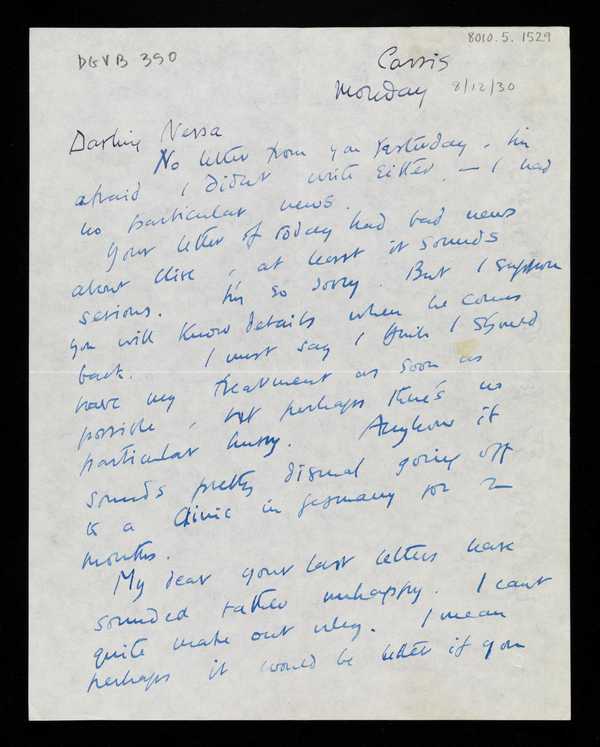 8010.5.1529
DGVB 390
Cassis
Monday 8/12/30
Darling Nessa
No letter from you yesterday. I'm
afraid I didn't write either — I had
no particular news.
Your letter of today had bad news
about Clive, at least it sounds
serious. I'm so sorry. But I suppose
you will know details when he comes
back. I must say I think I should
have my treatment as soon as
possible, but perhaps there's no
particular hurry. Anyhow it
sounds pretty dismal going off
to a clinic in Germany for 2
months.
My dear your last letters have
sounded rather unhappy. I can't
quite make out why. I mean
perhaps it would be better if you